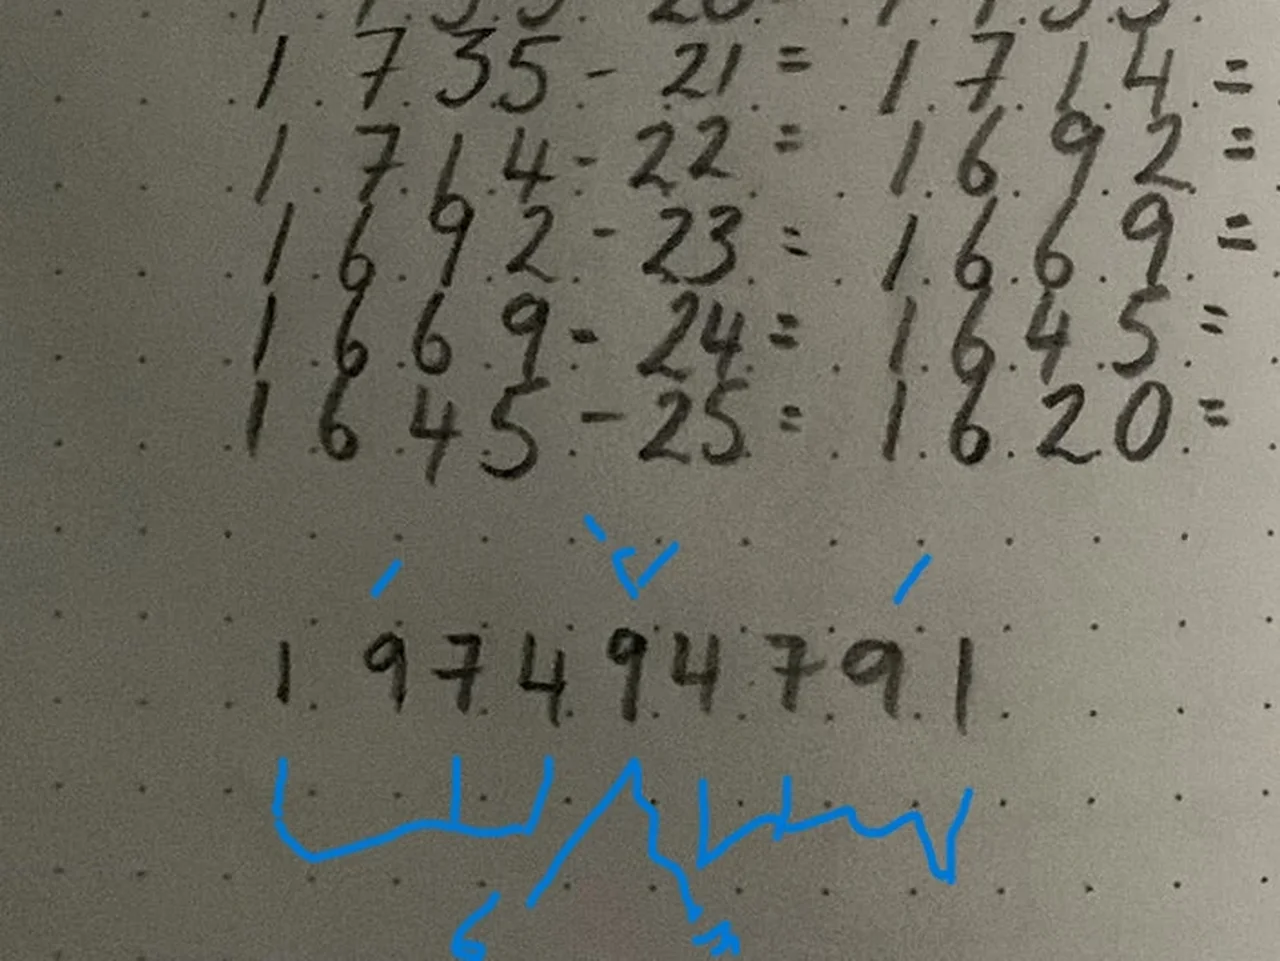 1 7 3 5 - 21 = 1 7 1 4 =
1 7 1 4 - 22 = 1 6 9 2 =
1 6 9 2 - 23 = 1 6 6 9 =
1 6 6 9 - 24 = 1 6 4 5 =
1 6 4 5 - 25 = 1 6 2 0 =
1 9 7 4 9 4 7 9 1
6